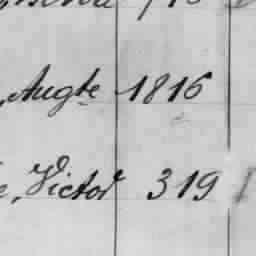 , Augte 1816
e, Victor 319